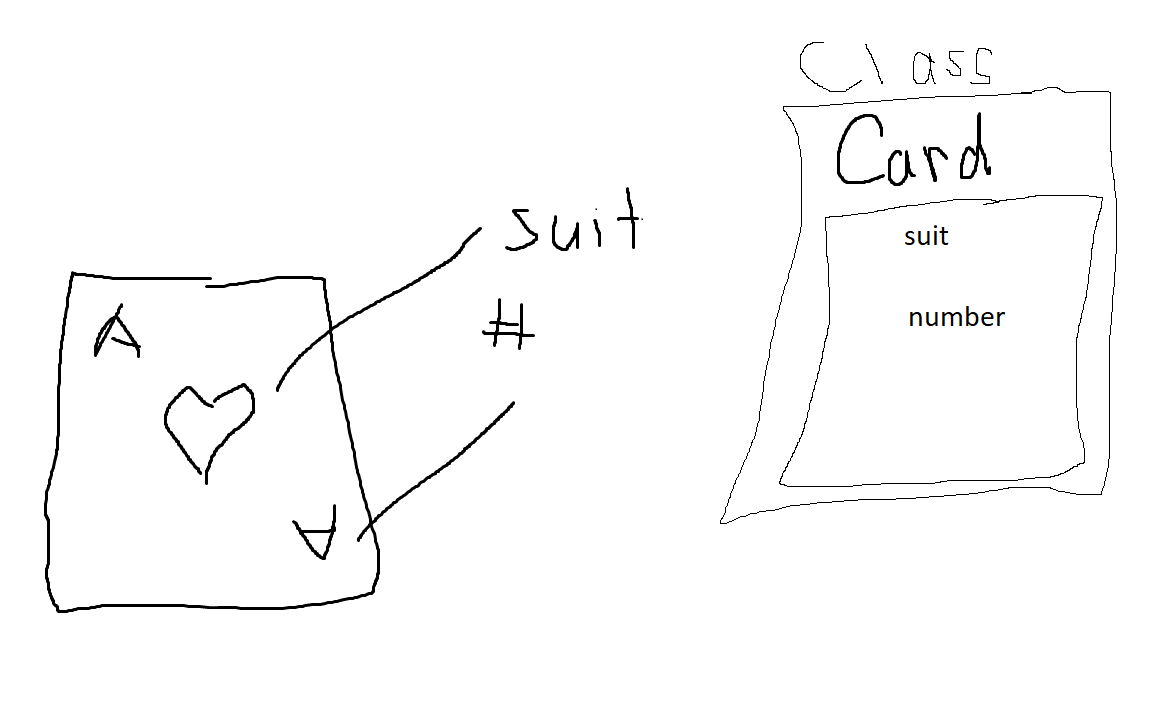 A
A
suit
#
Class
Card
suit
number